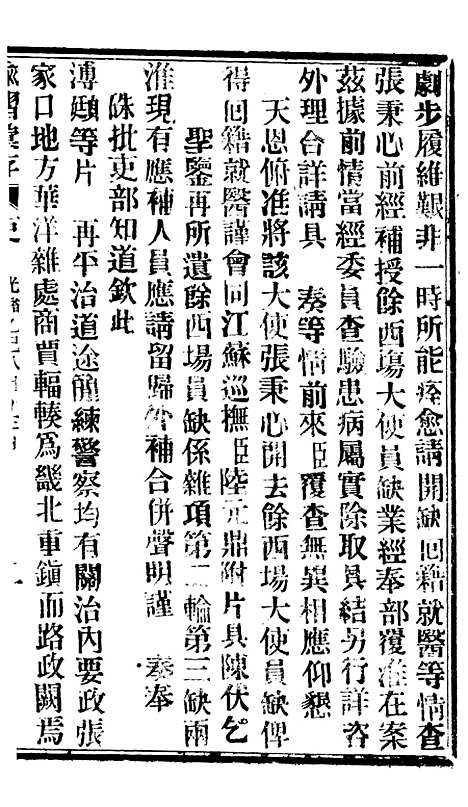 劇步履維艱非一時所能痊愈請開缺回籍就醫等情查
張秉心前經補授餘西塲大使員缺業經奉部覆准在案
茲據前情當經委員查驗患病屬實除取具結另行詳咨
外理合詳請具　奏等情前來臣覆查無異相應仰懇
天恩俯准將該大使張秉心開去餘西場大使員缺俾
得回籍就醫謹會同江蘇巡撫臣陸元鼎附片具陳伏乞
聖鑒再所遺餘西場員缺係雜項第二輪第三缺兩
淮現有應補人員應請留歸外補合併聲明謹　奏奉
硃批吏部知道欽此
溥頲等片　再平治道途簡練警察均有關治內要政張
家口地方華洋雜處商賈輻輳爲畿北重鎭而路政闕焉
諭摺彙存　光緒